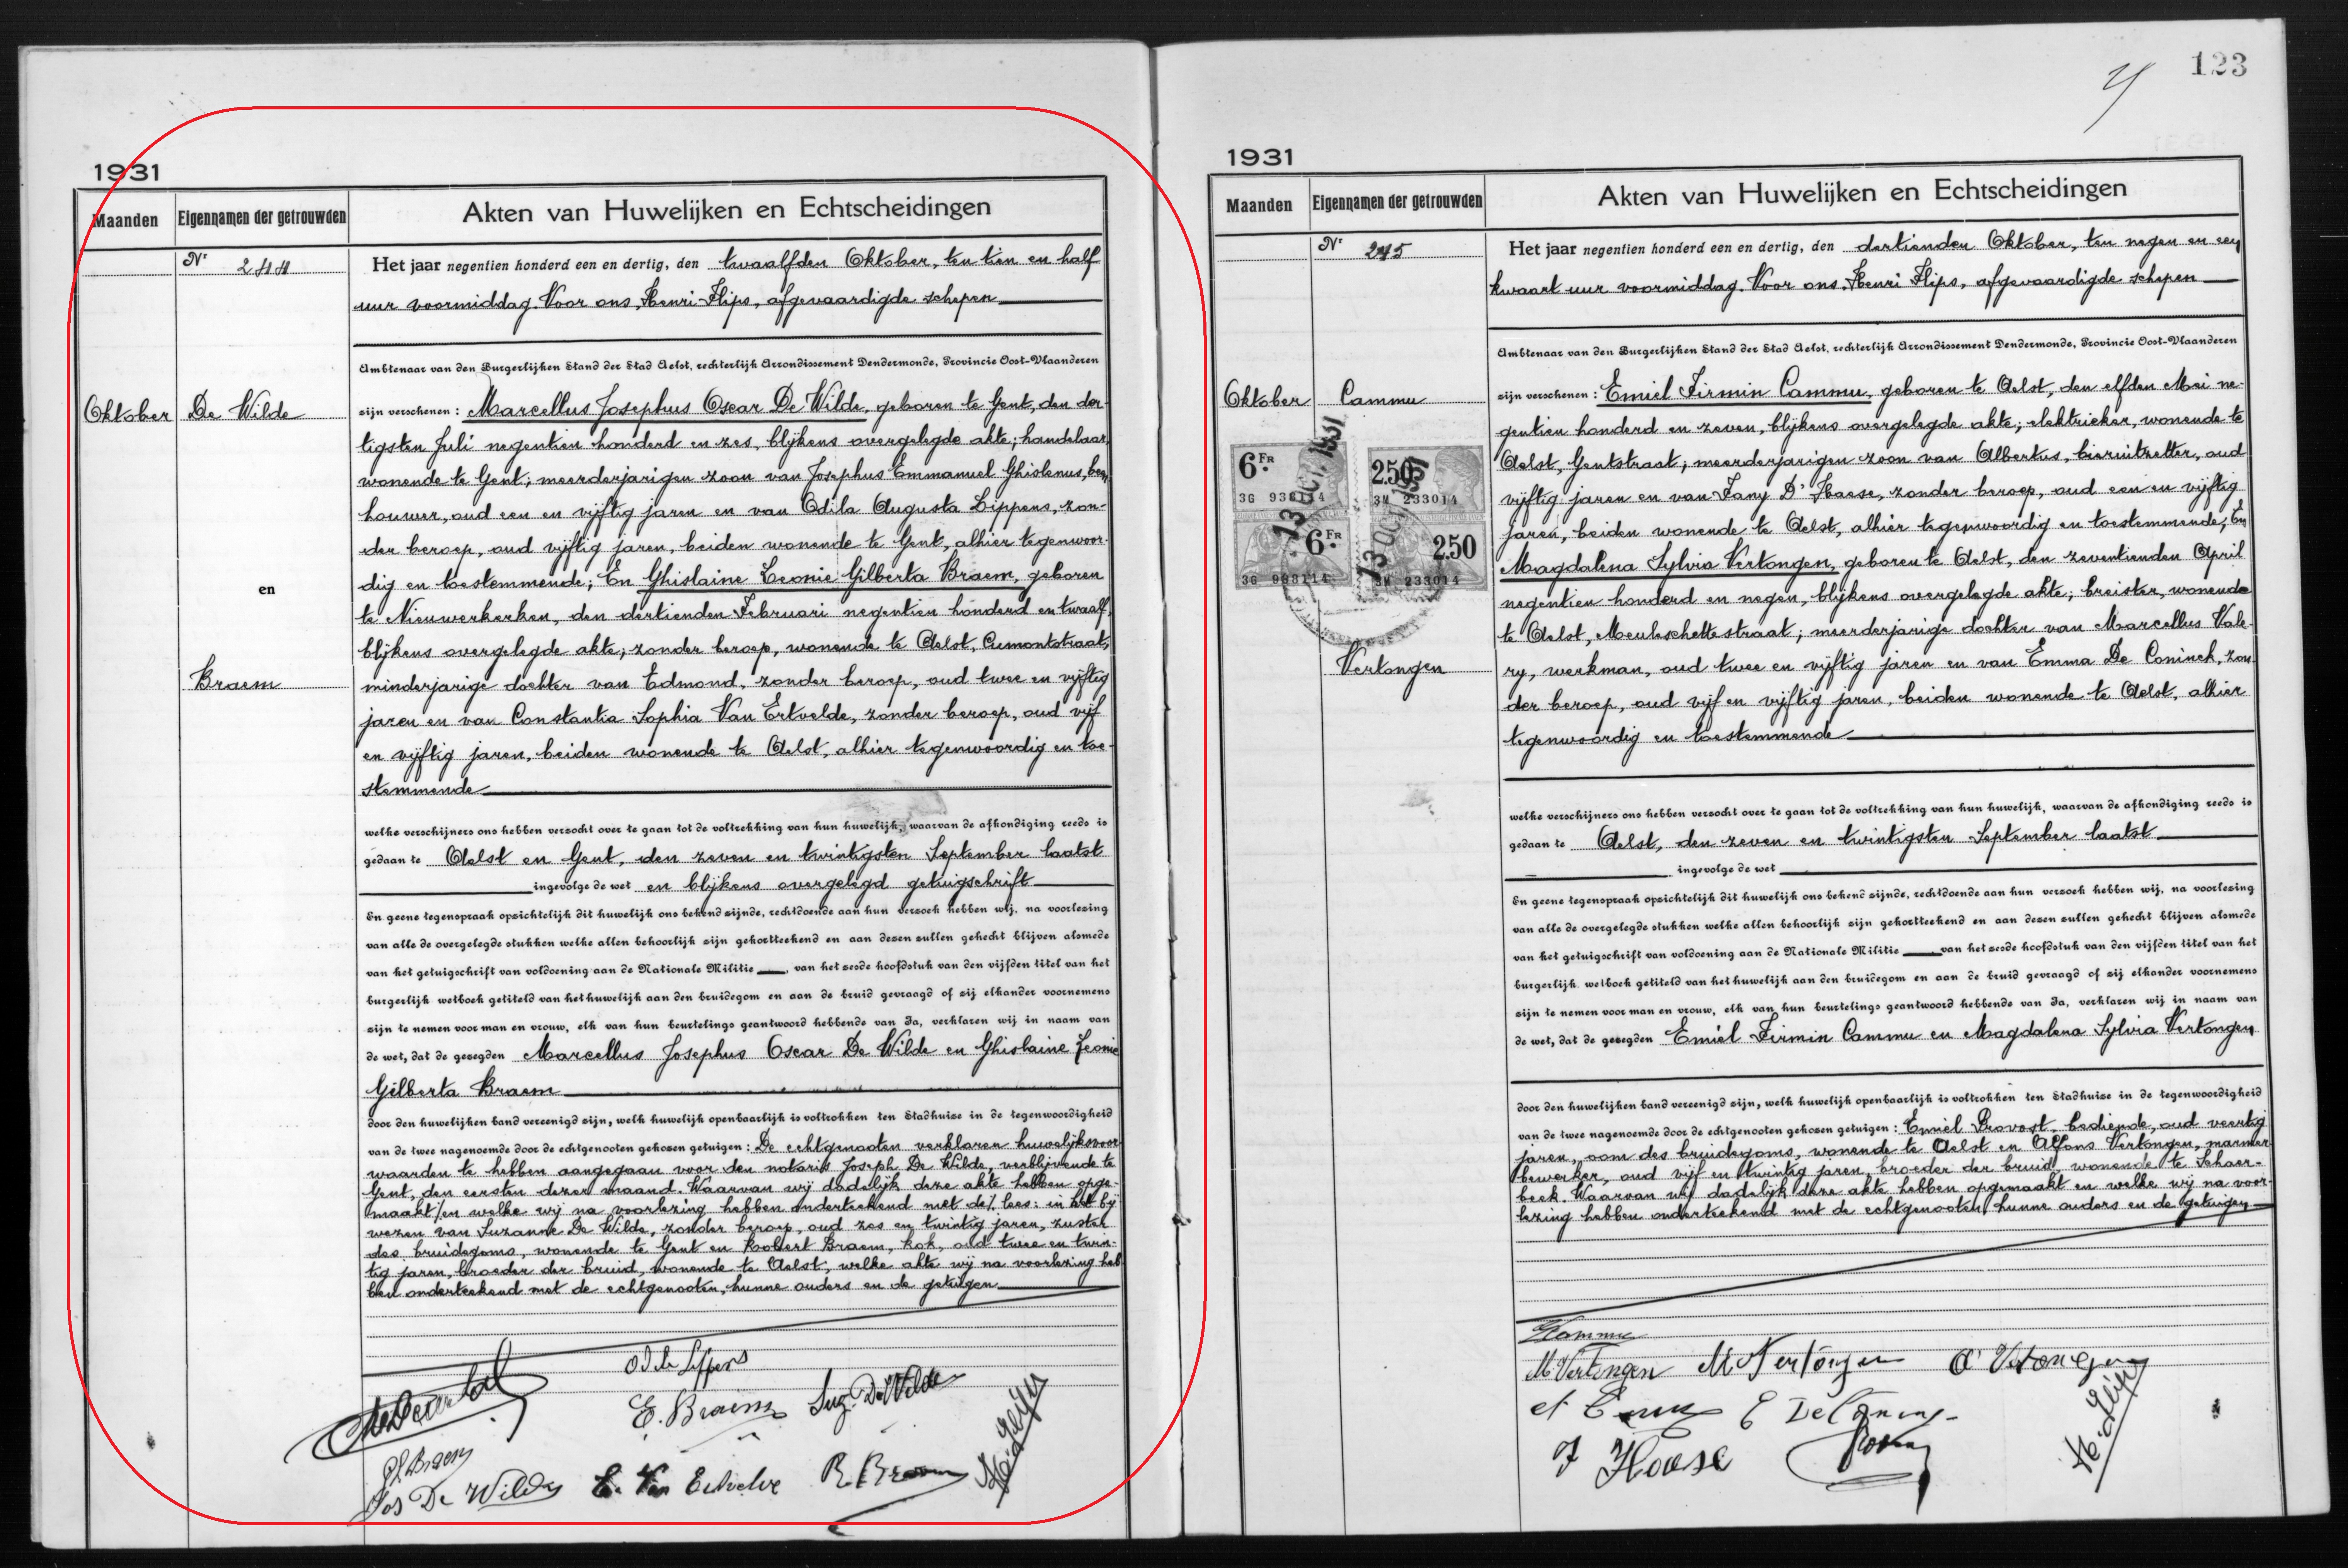 1931
Maanden
Eigennamen der getrouwden
Akten van Huwelijken en Echtscheidingen
Nr 244
Het jaar negentien honderd een en dertig, den twaalfden Oktober, ten tien en half
uur voormiddag. Voor ons, Henri Flips, afgevaardigde schepen
Ambtenaar van den Burgerlijken Stand der Stad Aelst, rechterlijk Arrondissement Dendermonde, Provincie Oost-Vlaanderen
Oktober
De Wilde
en
Braem
zijn verschenen: Marcellus Josephus Oscar De Wilde, geboren te Gent, den der-
tigsten Juli negentien honderd en zes, blijkens overgelegde akte; handelaar,
wonende te Gent; meerderjarigen zoon van Josephus Emmanuel Ghislenus, been-
houwer, oud een en vijftig jaren en van Odila Augusta Lippens, zon-
der beroep, oud vijftig jaren, beiden wonende te Gent, alhier tegenwoor-
dig en toestemmende; En Ghislaine Leonie Gilberta Braem, geboren
te Nieuwerkerken, den dertienden Februari negentien honderd en twaalf,
blijkens overgelegde akte; zonder beroep, wonende te Aelst, Cumontstraat,
minderjarige dochter van Edmond, zonder beroep, oud twee en vijftig
jaren en van Constantia Sophia Van Ertvelde, zonder beroep, oud vijf
en vijftig jaren, beiden wonende te Aelst, alhier tegenwoordig en toe-
stemmende
welke verschijners ons hebben verzocht over te gaan tot de voltrekking van hun huwelijk, waarvan de afkondiging reeds is
gedaan te Aelst en Gent, den zeven en twintigsten September laatst
ingevolge de wet en blijkens overgelegd getuigschrift
En geene tegenspraak opzichtelijk dit huwelijk ons bekend zijnde, rechtdoende aan hun verzoek hebben wij, na voorlezing
van alle de overgelegde stukken welke allen behoorlijk zijn gekortteekend en aan dezen zullen gehecht blijven alsmede
van het getuigschrift van voldoening aan de Nationale Militie, van het zesde hoofdstuk van den vijfden titel van het
burgerlijk wetboek getiteld van het huwelijk aan den bruidegom en aan de bruid gevraagd of zij elkander voornemens
zijn te nemen voor man en vrouw, elk van hun beurtelings geantwoord hebbende van Ja, verklaren wij in naam van
de wet, dat de gezegden Marcellus Josephus Oscar De Wilde en Ghislaine Leonie
Gilberta Braem
door den huwelijken band vereenigd zijn, welk huwelijk openbaarlijk is voltrokken ten Stadhuize in de tegenwoordigheid
van de twee nagenoemde door de echtgenooten gekozen getuigen: De echtgenooten verklaren huwelijksvoor-
waarden te hebben aangegaan voor den notaris Joseph De Wilde, verblijvende te
Gent, den eersten dezer maand. Waarvan wij dadelijk deze akte hebben opge-
maakt/en welke wij na voorlezing hebben onderteekend met de/. lees: in het bij-
wezen van Suzanne De Wilde, zonder beroep, oud zes en twintig jaren, zuster
des bruidegoms, wonende te Gent en Robert Braem, kok, oud twee en twin-
tig jaren, broeder der bruid, wonende te Aelst, welke akte wij na voorlezing heb-
ben onderteekend met de echtgenooten, hunne ouders en de getuigen
Odila Lippens
E. Braem
Suz. De Wilde
Gh Braem
Jos De Wilde
C. Van Ertvelde
R. Braem
H. Flips
123
1931
Maanden
Eigennamen der getrouwden
Akten van Huwelijken en Echtscheidingen
Nr 245
Het jaar negentien honderd een en dertig, den dertienden Oktober, ten negen en een
kwaart uur voormiddag. Voor ons, Henri Flips, afgevaardigde schepen
Ambtenaar van den Burgerlijken Stand der Stad Aelst, rechterlijk Arrondissement Dendermonde, Provincie Oost-Vlaanderen
Oktober
Cammu
6 FR
3G 938114
2.50
3M 233014
6 FR
3G 938114
2.50
3M 233014
13 OCT. 1931
13 OCT. 1931
Vertongen
zijn verschenen: Emiel Firmin Cammu, geboren te Aelst, den elfden Mei ne-
gentien honderd en zeven, blijkens overgelegde akte; elektrieker, wonende te
Aelst, Gentstraat; meerderjarigen zoon van Albertus, bieruitzetter, oud
vijftig jaren en van Fany D'Haese, zonder beroep, oud een en vijftig
jaren, beiden wonende te Aelst, alhier tegenwoordig en toestemmende; En
Magdalena Sylvia Vertongen, geboren te Aelst, den zeventienden April
negentien honderd en negen, blijkens overgelegde akte; breister, wonende
te Aelst, Meuleschettestraat; meerderjarige dochter van Marcellus Vale-
ry, werkman, oud twee en vijftig jaren en van Emma De Coninck, zon-
der beroep, oud vijf en vijftig jaren, beiden wonende te Aelst, alhier
tegenwoordig en toestemmende
welke verschijners ons hebben verzocht over te gaan tot de voltrekking van hun huwelijk, waarvan de afkondiging reeds is
gedaan te Aelst, den zeven en twintigsten September laatst
ingevolge de wet
En geene tegenspraak opzichtelijk dit huwelijk ons bekend zijnde, rechtdoende aan hun verzoek hebben wij, na voorlezing
van alle de overgelegde stukken welke allen behoorlijk zijn gekortteekend en aan dezen zullen gehecht blijven alsmede
van het getuigschrift van voldoening aan de Nationale Militie van het zesde hoofdstuk van den vijfden titel van het
burgerlijk wetboek getiteld van het huwelijk aan den bruidegom en aan de bruid gevraagd of zij elkander voornemens
zijn te nemen voor man en vrouw, elk van hun beurtelings geantwoord hebbende van Ja, verklaren wij in naam van
de wet, dat de gezegden Emiel Firmin Cammu en Magdalena Sylvia Vertongen
door den huwelijken band vereenigd zijn, welk huwelijk openbaarlijk is voltrokken ten Stadhuize in de tegenwoordigheid
van de twee nagenoemde door de echtgenooten gekozen getuigen: Emiel Provost, bediende, oud veertig
jaren, oom des bruidegoms, wonende te Aelst en Alfons Vertongen, marmer-
bewerker, oud vijf en twintig jaren, broeder der bruid, wonende te Schaer-
beek. Waarvan wij dadelijk deze akte hebben opgemaakt en welke wij na voor-
lezing hebben onderteekend met de echtgenooten, hunne ouders en de getuigen
ECammu
M Vertongen
M Vertongen
A Vertongen
E De Coninck
F Haese
H. Flips